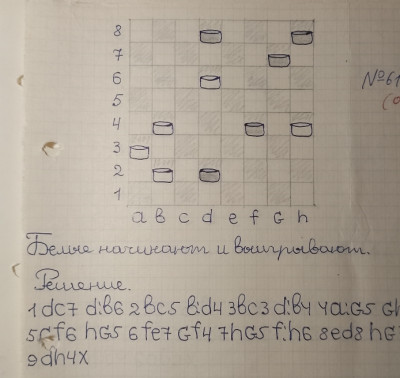 8
7
6
5
4
3
2
1
a b c d e f G h
№61
Белые начинают и выигрывают.
Решение.
1 dc7 d:b6 2 bc5 b:d4 3 bc3 d:b4 4 a:G5 Gh
5 Gf6 hG5 6 fe7 Gf4 7 hG5 f:h6 8 ed8 hG
9 dh4X